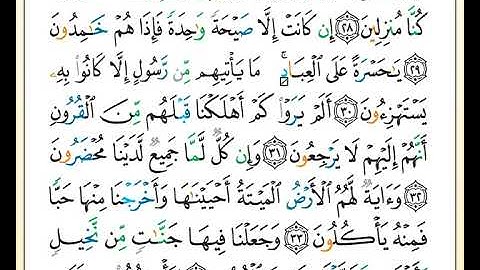 كُنَّا مُنزِلِينَ ﴿٢٨﴾ إِن كَانَتْ إِلَّا صَيْحَةً وَٰحِدَةً فَإِذَا هُمْ خَٰمِدُونَ
﴿٢٩﴾ يَٰحَسْرَةً عَلَى ٱلْعِبَادِ ۚ مَا يَأْتِيهِم مِّن رَّسُولٍ إِلَّا كَانُوا۟ بِهِۦ
يَسْتَهْزِءُونَ ﴿٣٠﴾ أَلَمْ يَرَوْا۟ كَمْ أَهْلَكْنَا قَبْلَهُم مِّنَ ٱلْقُرُونِ
أَنَّهُمْ إِلَيْهِمْ لَا يَرْجِعُونَ ﴿٣١﴾ وَإِن كُلٌّ لَّمَّا جَمِيعٌ لَّدَيْنَا مُحْضَرُونَ
﴿٣٢﴾ وَءَايَةٌ لَّهُمُ ٱلْأَرْضُ ٱلْمَيْتَةُ أَحْيَيْنَٰهَا وَأَخْرَجْنَا مِنْهَا حَبًّا
فَمِنْهُ يَأْكُلُونَ ﴿٣٣﴾ وَجَعَلْنَا فِيهَا جَنَّٰتٍ مِّن نَّخِيلٍ